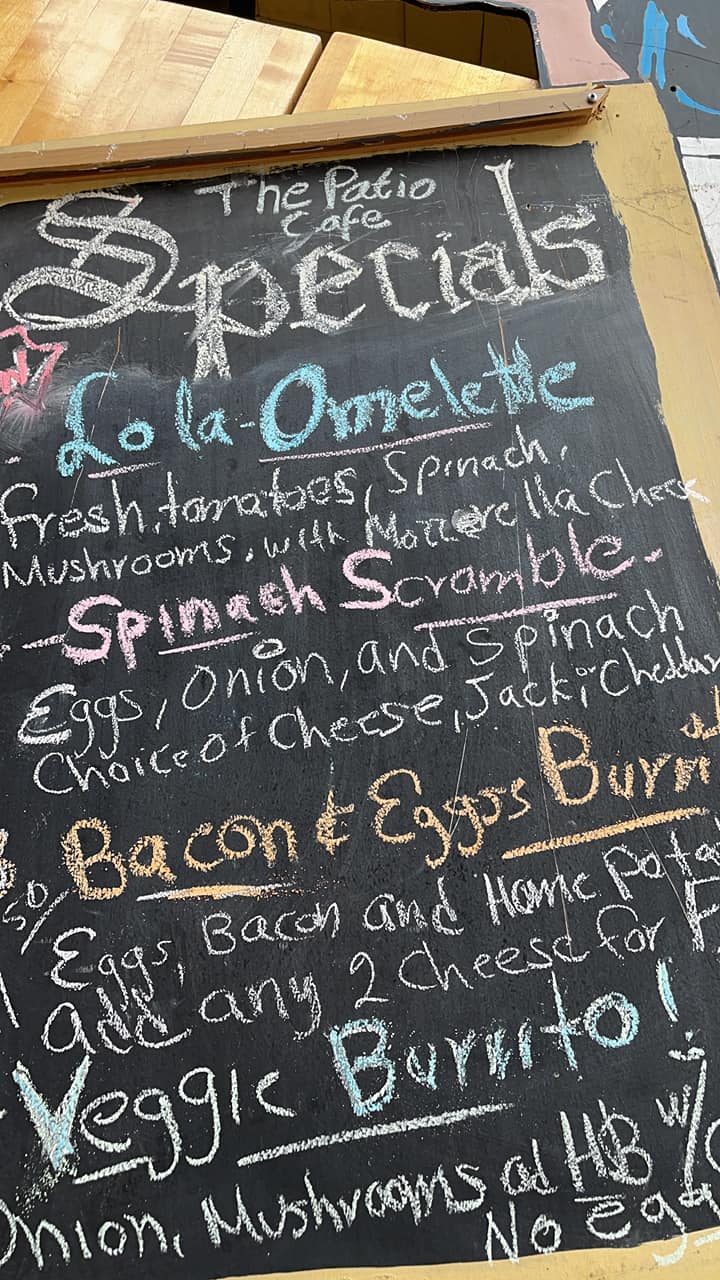 The Patio
Cafe
Specials
Lola-Omelette
Fresh, tomatoes, Spinach,
Mushrooms, with Mozzarella Chees
Spinach Scramble.
Eggs, Onion, and Spinach
Choice of Cheese, Jack, or Cheddar
Bacon & Eggs Burrit
50/
Eggs, Bacon and Home Pota
add any 2 cheese for F
Veggie Burrito!
Onion, Mushrooms ad HB w/
No egg